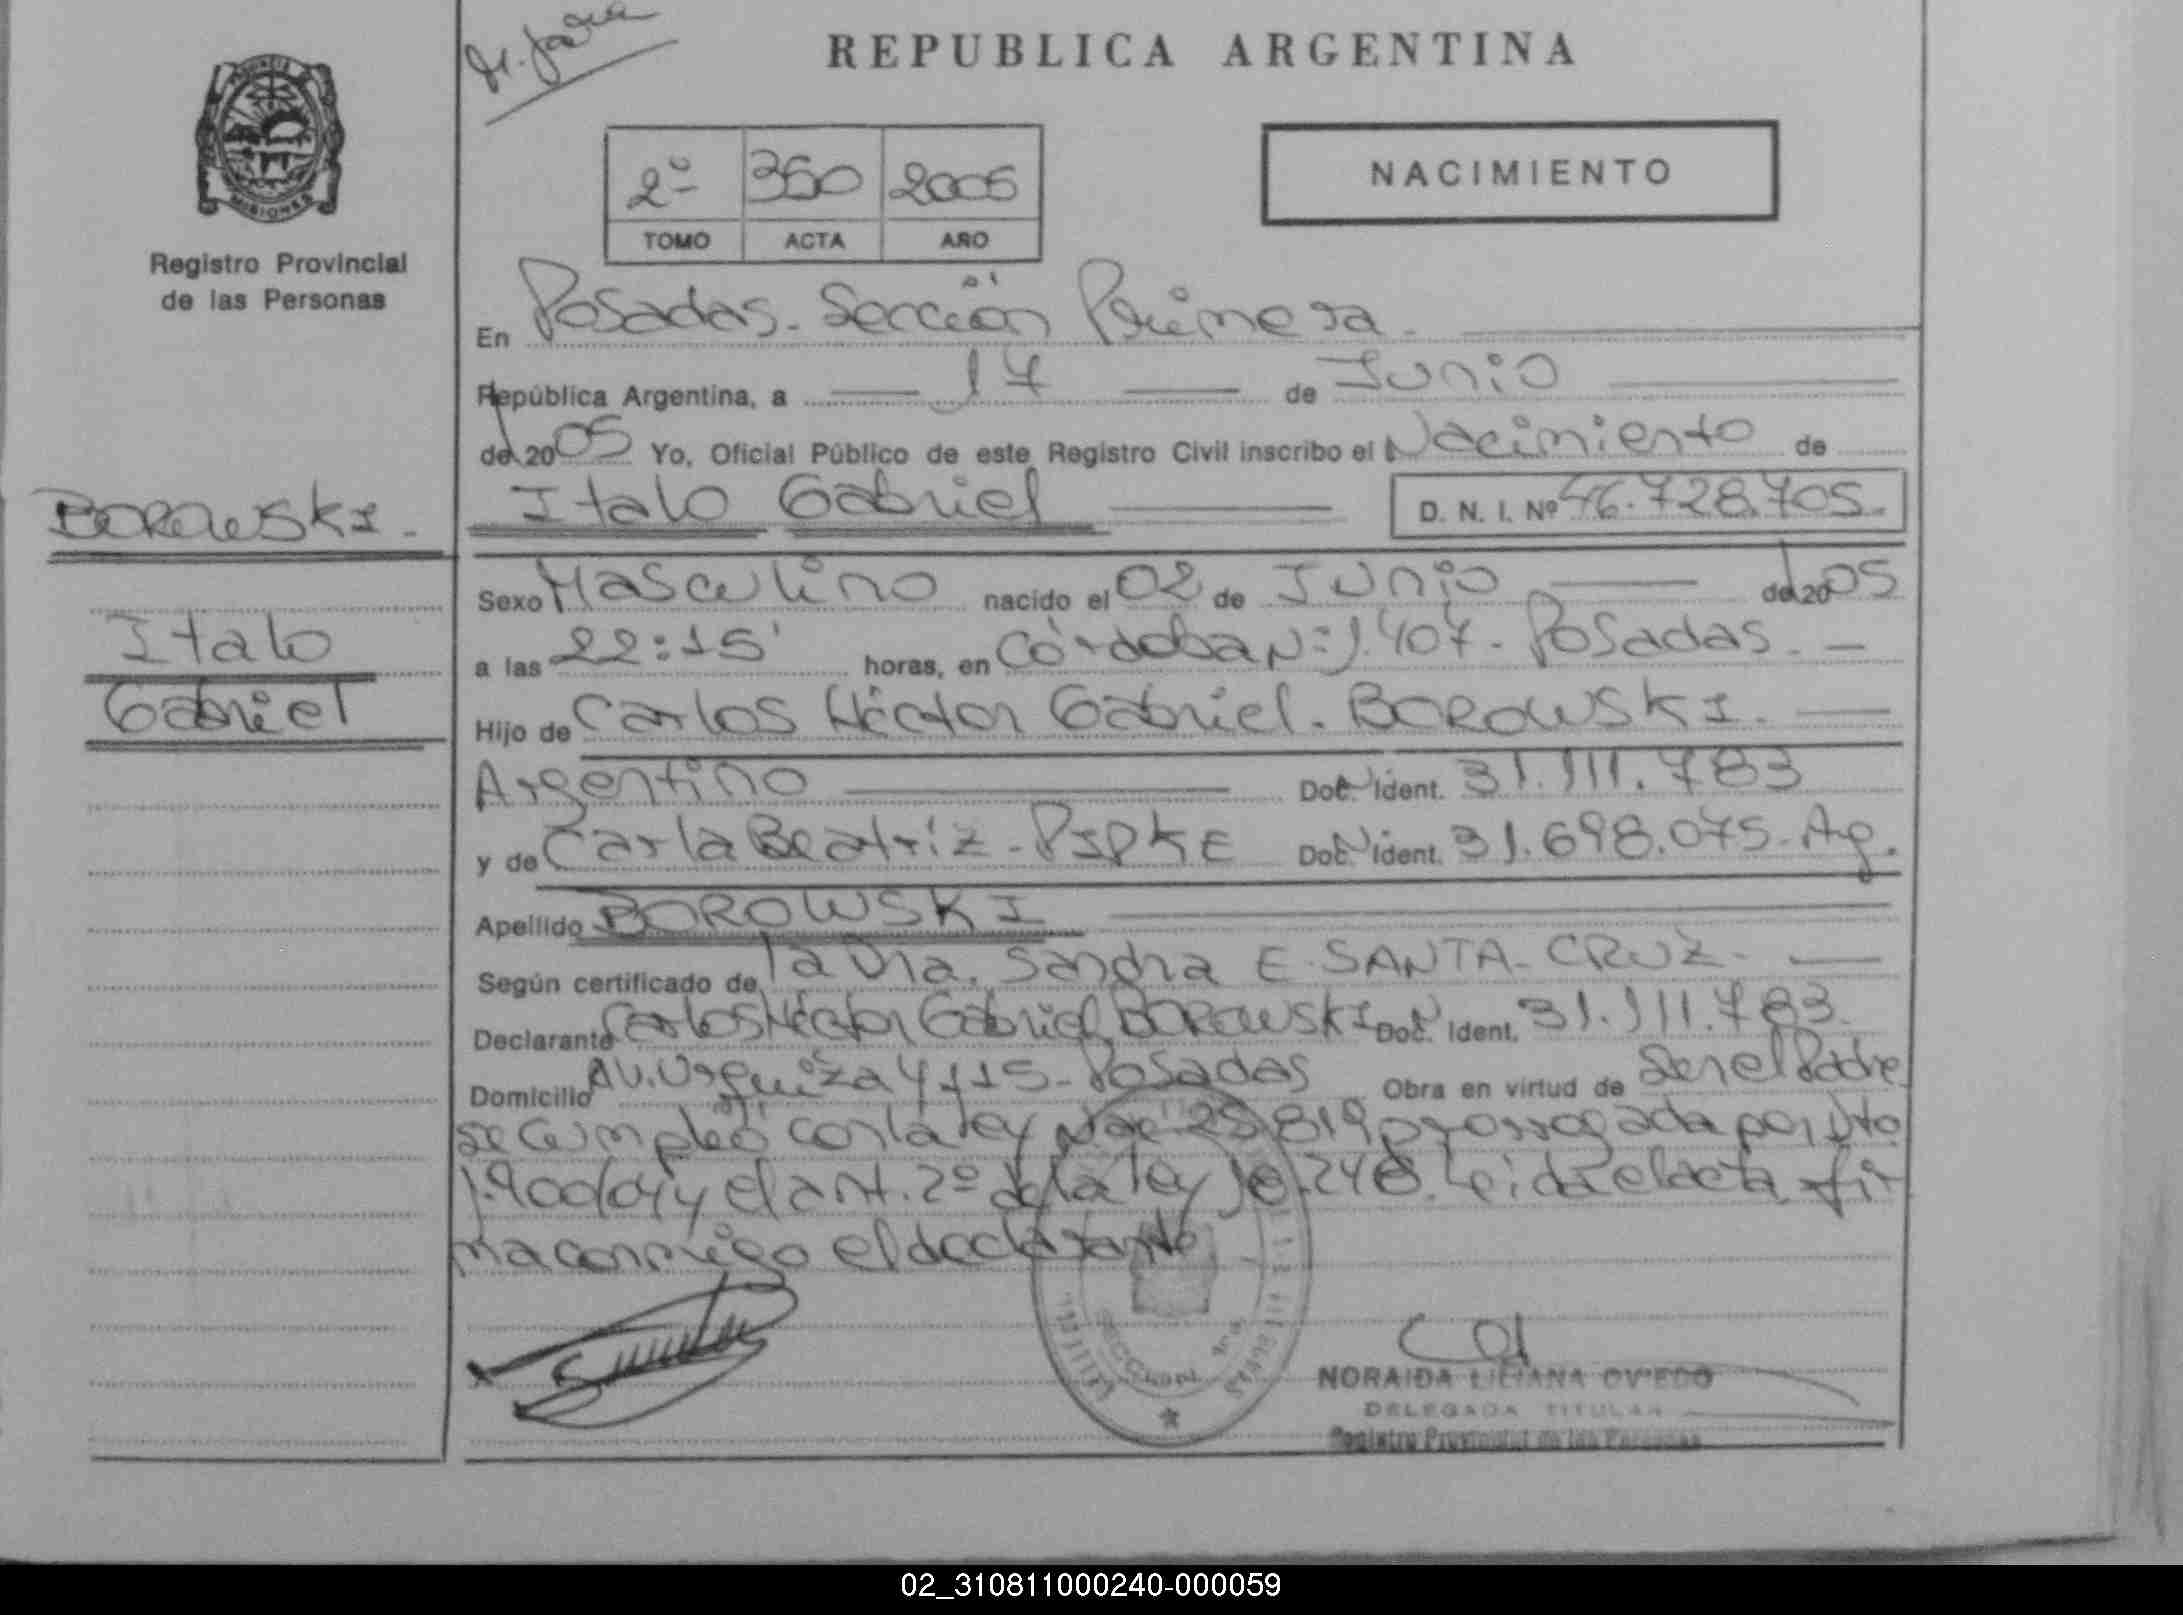 REPUBLICA ARGENTINA
MISIONES
Registro Provincial
de las Personas
NACIMIENTO
2º 350 2005
TOMO ACTA AÑO
En Posadas. Sección Primera.
República Argentina, a 17 de Junio
de 2005 Yo, Oficial Público de este Registro Civil inscribo el Nacimiento de
Italo Gabriel D. N. I. Nº 46.728.705.
BOROWSKI.
Italo
Gabriel
Sexo Masculino nacido el 02 de Junio de 2005
a las 22:15' horas, en Córdoba Nº 1.407. Posadas. -
Hijo de Carlos Héctor Gabriel. BOROWSKI.
Argentino Doc. Ident. 31.111.783
y de Carla Beatriz - PIPKE Doc. Ident. 31.698.075 - Arg.
Apellido BOROWSKI
Según certificado de la Dra. Sandra E. SANTA-CRUZ-
Declarante Carlos Héctor Gabriel BOROWSKI Doc. Ident. 31.111.783.
Domicilio Av. Urquiza 4115 - Posadas Obra en virtud de Ser el Padre
se cumpleó con la ley 25.819 prorrogada por Dto
1.900/04 y el art. 2º de la ley 18.248. Leida el acta fir
ma conmigo el declarante
SECCION 1ra.
NORAIDA LILIANA OVIEDO
DELEGADA TITULAR
Registro Provincial de las Personas
02_310811000240-000059